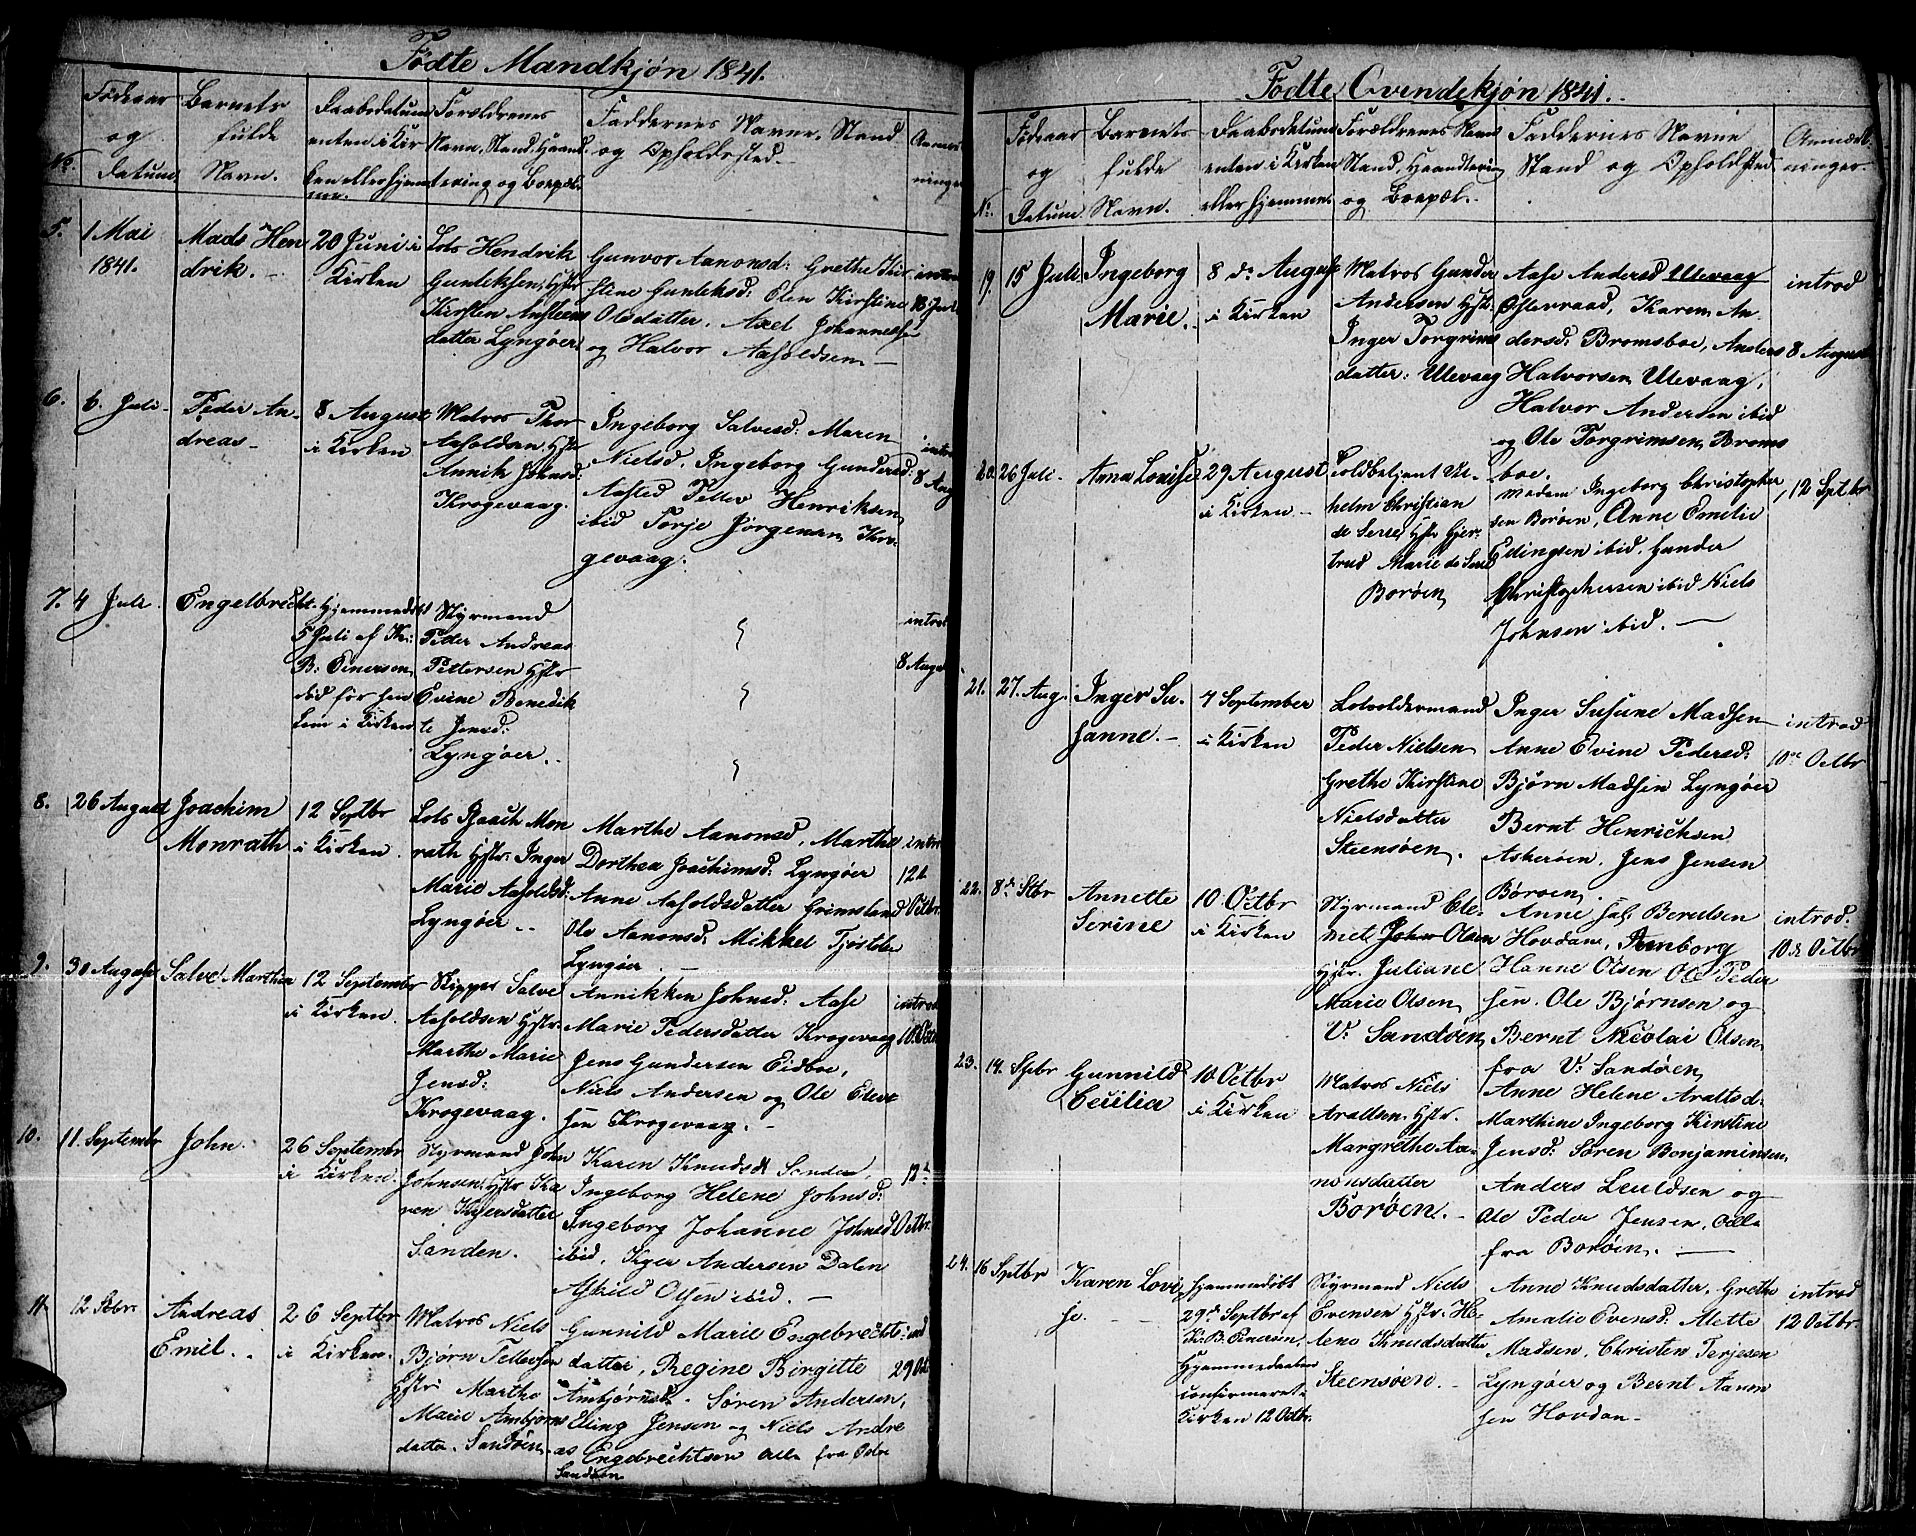 Fødte Mandkjøn 1841.
No.
Födeaar
og
Datum
Barnets
fulde
Navn.
Daabsdatum
enten i Kir
ken eller hjem
me.
Forældrenes
Navn, Stand, Haand
tering og Boepæl.
Faddernes Navne, Stand
og Opholdssted.
5.
1 Mai
1841.
Mads Hen
drik.
20 Juni i
Kirken
Lods Hendrik
Gunleksen, Hstr
Kirsten Ansteens
datter Lyngøer.
Gunvor Aanonsd: Grethe Kir
stine Gunleksd: Olen Kirstine
Olsdatter. Axel Johannesse
og Halvor Aasoldsen
6.
6. Juli
Peder An
dreas
8 August
i Kirken
Matros Thor
Aasoldsen Hstr
Annik Johnsd:
Krogevaag.
Ingeborg Salvesd: Maren
Nielsd, Ingeborg Gundersd:
Aasted Tellev Henriksen
ibid Torje Jörgensen Kro
gevaag.
8 Aug
7.
4 Juli.
Engelbrecht
Hjemmedöbt
5 Juli af Kr:
B: Einersen
ibid før hen
kom i Kirken
Styrmand
Peder Andreas
Pettersen Hstr
Evine Benedik
te Jensd:
Lyngøer.
introd
8 Augu
8.
26 August
Joachim
Monrath
12 Septbr
i Kirken
Lods Raach Mon
rath Hstr. Inger
Marie Aasoldsd:
Lyngøer
Marthe Aanonsd, Marthe
Dorthea Joachimsd: Lyngöer
Anne Aasoldsdatter Grimsland
Ole Aanonsd: Mikkel Tjöstelse
Lyngøer
introd
12
Octbr.
9.
30 August
Salve Marthin
12 Septembr
i Kirken.
Skipper Salve
Aasoldsen Hstr.
Marthe Marie
Jensd:
Krogevaag.
Annikken Johnsd: Aase
Marie Pedersdatter Krogevaag
Jens Gundersen Eidboe,
Niels Andersen og Ole Eleve
sen Krogevaag.
introd
10 Octb
10.
11. Septembr
John.
26 Septembr
i Kirken.
Styrmand John
Johnsen, Hstr Ka
ren Kjersdatter
Sanden.
Karen Knudsd Sanden,
Ingeborg Helene Johnsd:
Ingeborg Johanne Johnsd
ibid, Kjer Andersen Dalen
Askild Olsen ibid.
Octbr.
11.
12 Stbr.
Andreas
Emil.
26 Septbr
i Kirken.
Matros Niels
Bjørn Tellevsen
Hstr Marthe
Marie Ambjörns
datter. Sandöen.
Gunnild Marie Engebrechts
datter, Regine Birgitte
Ambjörnsd. Søren Andersen,
Elling Jensen og Niels Andre
as Engebrechtsen Alle fra Östre
Sandöen
29 Oct
Fødte Qvindekjön 1841.
No.
Födeaar
og
Datum
Barnets
fulde
Navn.
Daabsdatum
enten i Kirken
eller hjemme.
Forældrenes Navn
Stand, Haandtering
og Boepæl.
Faddernes Navne
Stand og Opholdssted
Anmærk
ninger.
19.
15 Juli
Ingeborg
Marie.
8de August
i Kirken
Matros Gunder
Andersen Hstr.
Inger Torgrims
datter: Ulevaag
Aase Andersd Ulevaag
Østeraad, Karen An
dersd: Bromsboe, Anders
Halvorsen Ulevaag,
Halvor Andersen ibid
og Ole Torgrimsen, Broms
boe.
introd
8 August
20.
26 Juli.
Anna Louise
29 August
i Kirken
Toldbetjent Vil
helm Christian
de Seve Hstr Gjer
trud Marie de Seve
Borøen
Madam Ingeborg Christopher
sen Borøen, Anne Emilie
Edingsen ibid. Gunder
Christophersen ibid Niels
Johnsen ibid.
12 Sptbr
21.
27. Aug.
Inger Su
sanne.
4 September
i Kirken
Lodsoldermand
Peder Nielsen
Grethe Kirstine
Nielsdatter
Steensøen.
Inger Susane Madsen
Anne Evine Pedersd:
Bjørn Madsen Lyngøer
Bernt Henrichsen
Askerøen, Jens Jensen
Børøen.
introd
10de Octbr
22.
8de Stbr
Annette
Serine
10 Octbr
i Kirken
Styrmand Cle
met John Olsen
Hstr. Juliane
Marie Olsen
V: Sandøen
Anne Berulsen
Hovdan, Amborg
Hanne Olsen Ole Peder
sen. Ole Bjørnsen og
Bernt Nicolai Olsen
fra V: Sandøen
introd.
10de Octbr
23.
14. Sptbr
Gunnild
Cecilia
10 Octbr
i Kirken
Matros Niels
Araldsen, Hstr.
Margrethe Aa
nonsdatter
Borøen.
Anne Helene Araltsd.
Marthine Ingeborg Kirstine
Jensd: Søren Benjaminsen,
Anders Leuldsen og
Ole Peder Jensen, Alle
fra Borøen.
24.
16 Sptbr
Karen Lovi
se.
Hjemmedöbt
29de Septbr af
Kr: B: Einersen,
Hjemmedaaben
confirmeret i
Kirken 12 Octbr.
Styrmand Niels
Evensen Hstr. He
lene Knudsdatter
Steensøen.
Anne Knudsdatter, Grethe
Amalie Evensd: Alette
Madsen, Christen Terjesen
Lyngøer og Bernt Aanon
sen Hovdan
introd
12 Octbr.